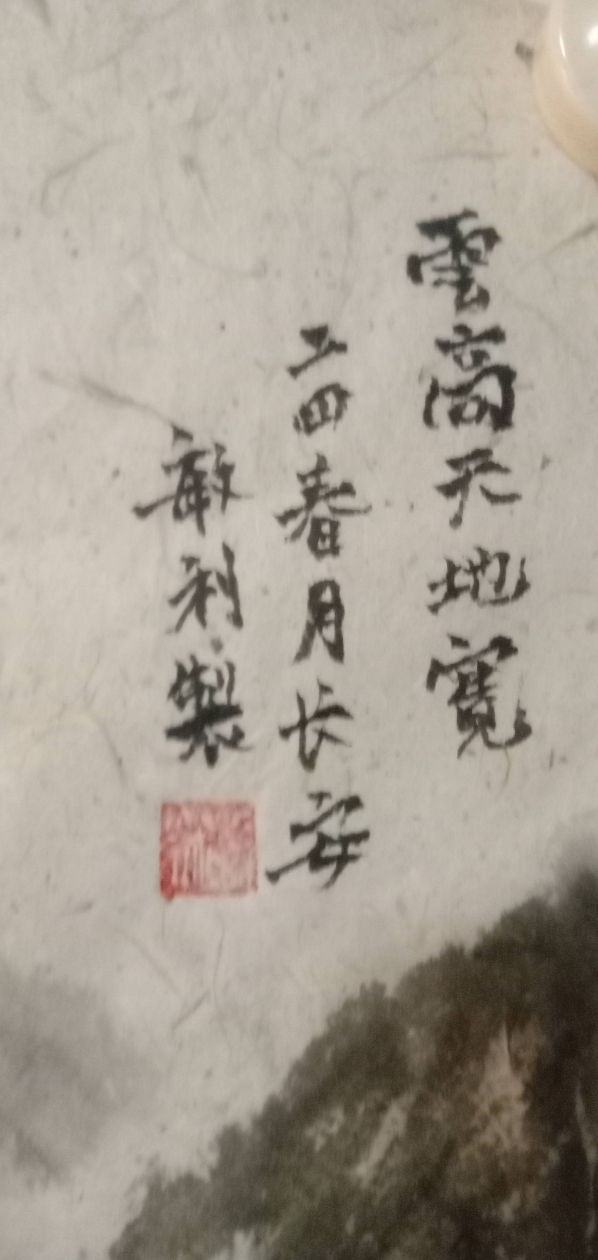 雲高天地寬
二四春月长安
敏利製